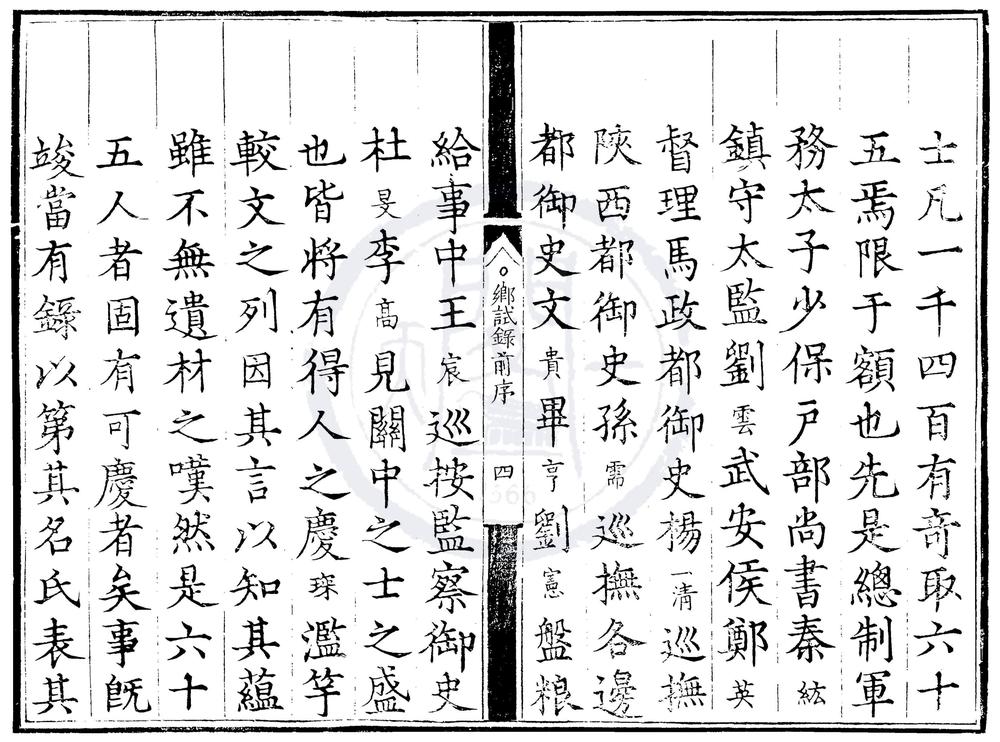 士凡一千四百有奇取六十
五焉限于額也先是總制軍
務太子少保戸部尚書秦紘
鎮守太監劉雲武安侯鄭英
督理馬政都御史楊一清巡撫
陝西都御史孫需巡撫各邊
都御史文貴畢亨劉憲盤粮
鄉試錄前序
四
給事中王宸巡按監察御史
杜旻李高見關中之士之盛
也皆將有得人之慶琛濫竽
較文之列因其言以知其蘊
雖不無遺材之嘆然是六十
五人者固有可慶者矣事旣
竣當有錄以第其名氏表其